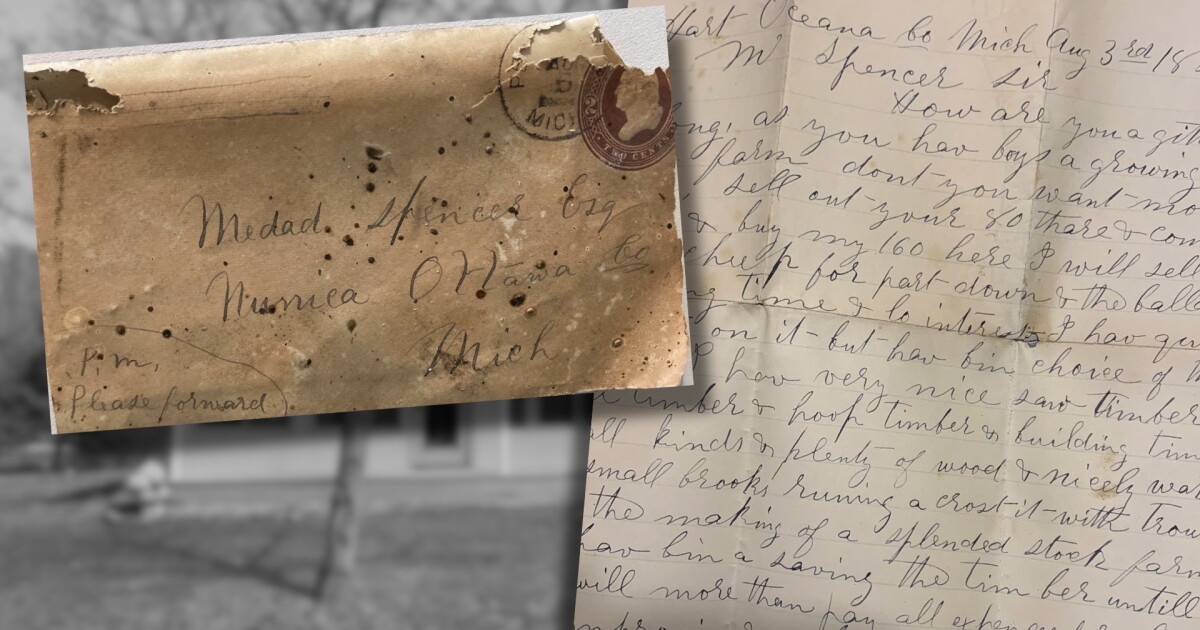 MICH
TWO CENTS
Medad Spencer Esq
Nunica Ottawa Co
Mich
P. M.
Please forward
Hart Oceana Co Mich Aug 3rd 18
Mr Spencer Sir
How are you a git
ong, as you hav boys a growing
farm dont you want mo
sell out your 80 thare & com
& buy my 160 here I will sell
cheep for part down & the ball
ng time & lo interest I hav qu
on it but hav bin choice of th
I hav very nice saw timber
timber & hoop timber & building tim
all kinds & plenty of wood & nicely wat
small brooks runing a crost it with Trou
the making of a splended stock farm
hav bin a saving the tim ber untill
will more than pay all expen